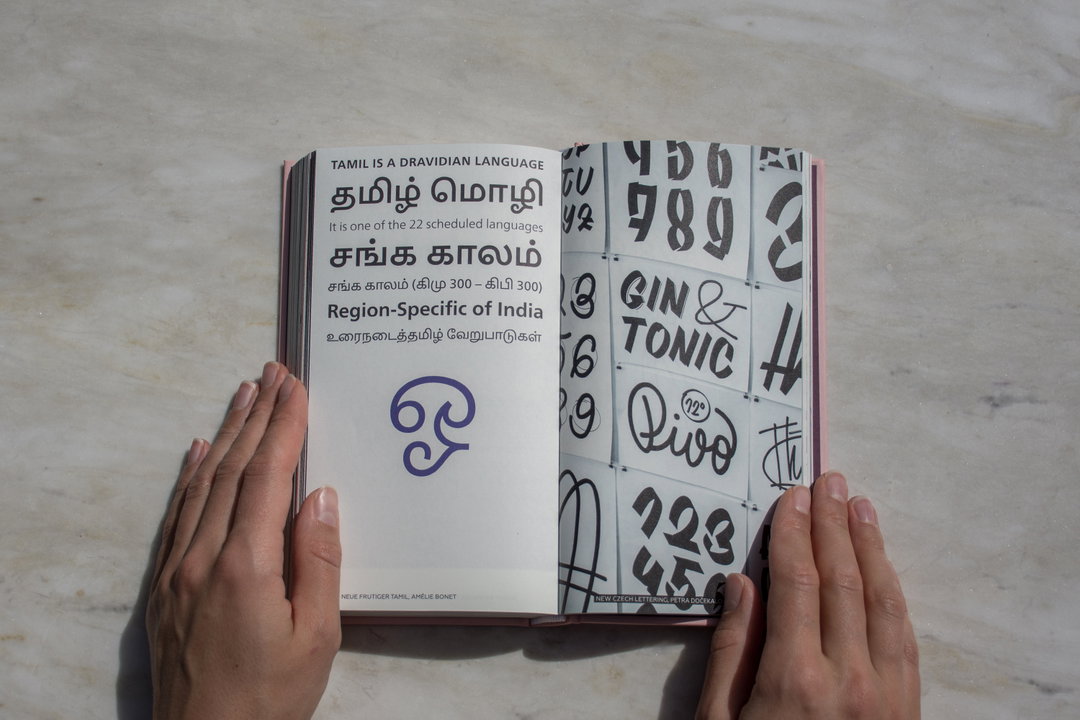 TAMIL IS A DRAVIDIAN LANGUAGE
தமிழ் மொழி
It is one of the 22 scheduled languages
சங்க காலம்
சங்க காலம் (கிமு 300 – கிபி 300)
Region-Specific of India
உரைநடைத்தமிழ் வேறுபாடுகள்
ஓ
NEUE FRUTIGER TAMIL, AMÉLIE BONET
456
789
GIN &
TONIC
12°
Pivo
123
45
NEW CZECH LETTERING, PETRA DOČEKA